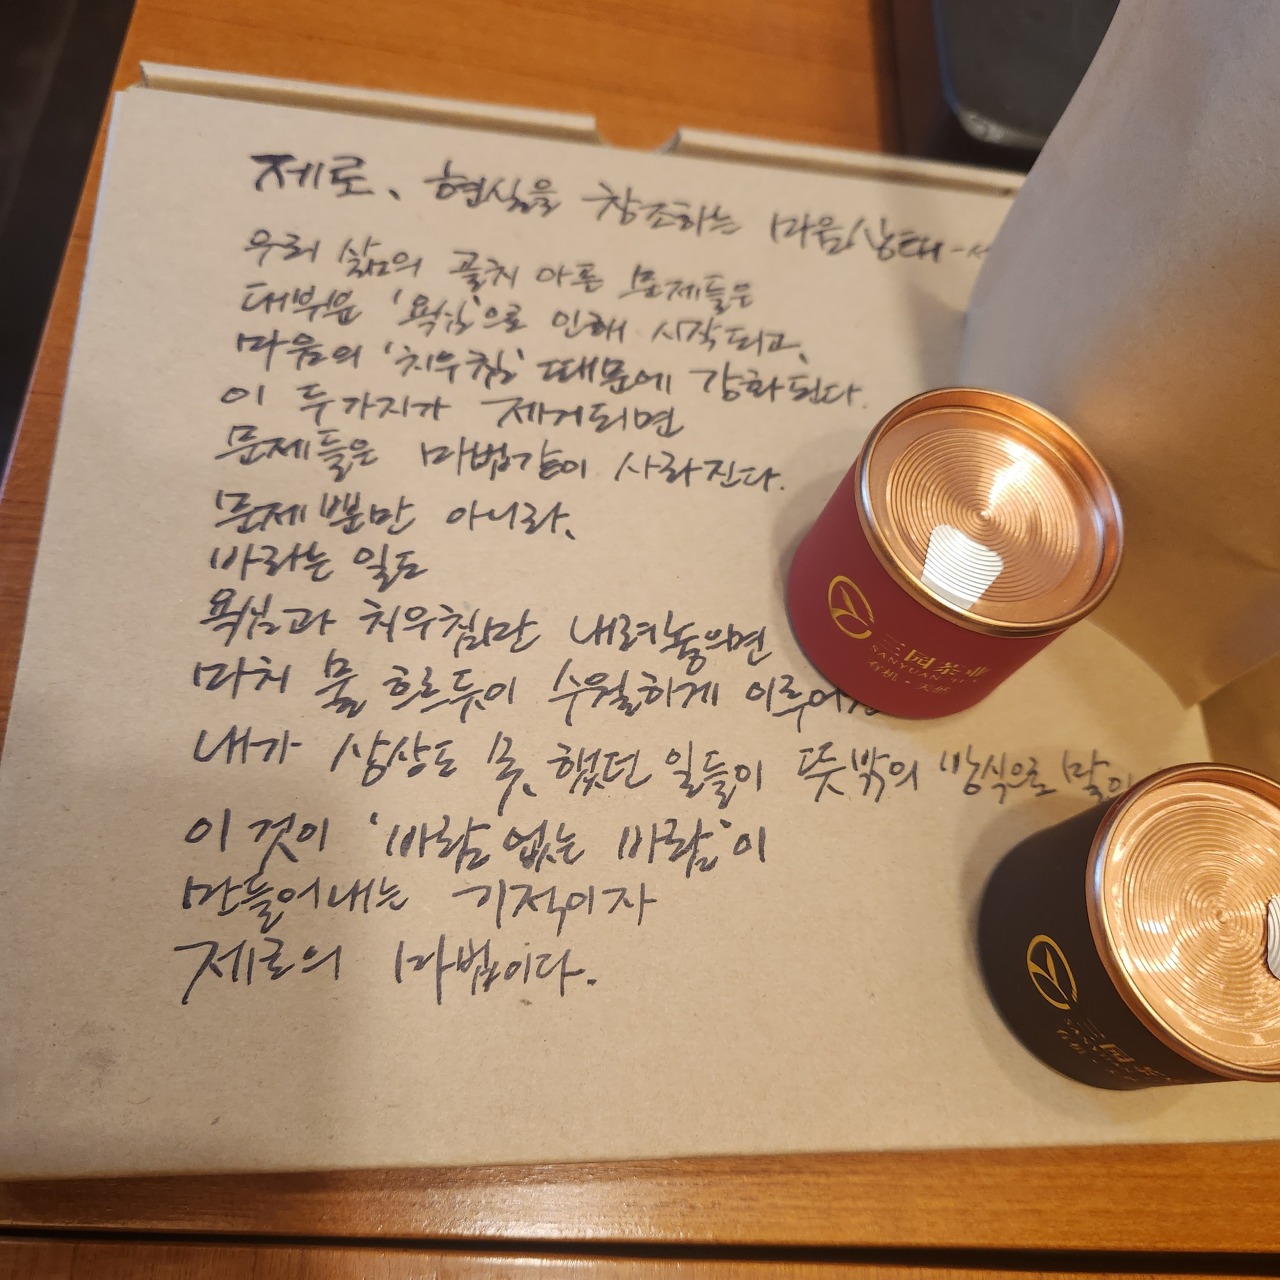 제로, 현실을 창조하는 마음상태
우리 삶의 골치 아픈 문제들은
대부분 '욕심'으로 인해 시작되고,
마음의 '치우침' 때문에 강화된다.
이 두가지가 제거되면
문제들은 마법같이 사라진다.
문제뿐만 아니라,
바라는 일도
욕심과 치우침만 내려놓으면
마치 물 흐르듯이 수월하게
내가 상상도 못했던 일들이 뜻밖의 방식으로 많이
이것이 '바람 없는 바람'이
만들어내는 기적이자
제로의 마법이다.
三园茶业
SANYUAN
有机·天然
三园茶